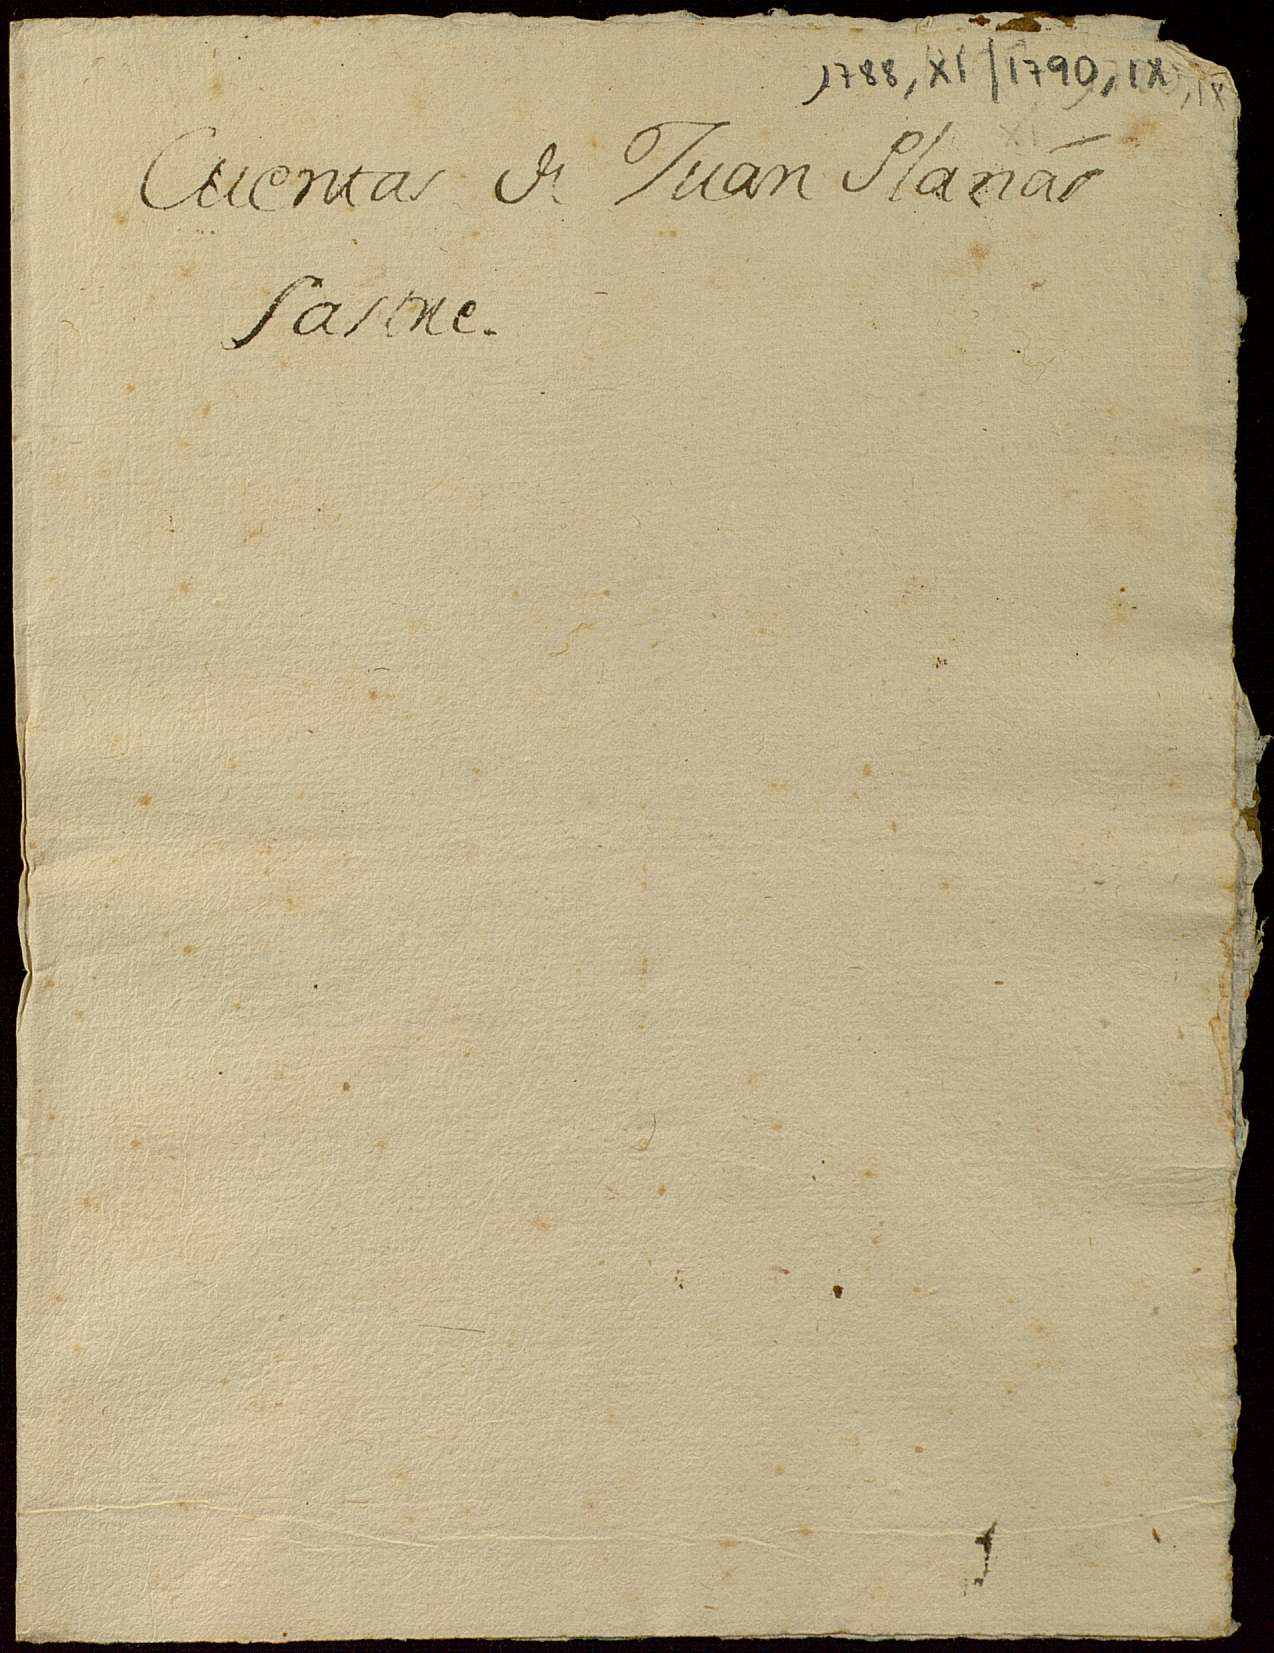 1788, XI / 1790, IX
Cuentas de Juan Planas
Sastre.